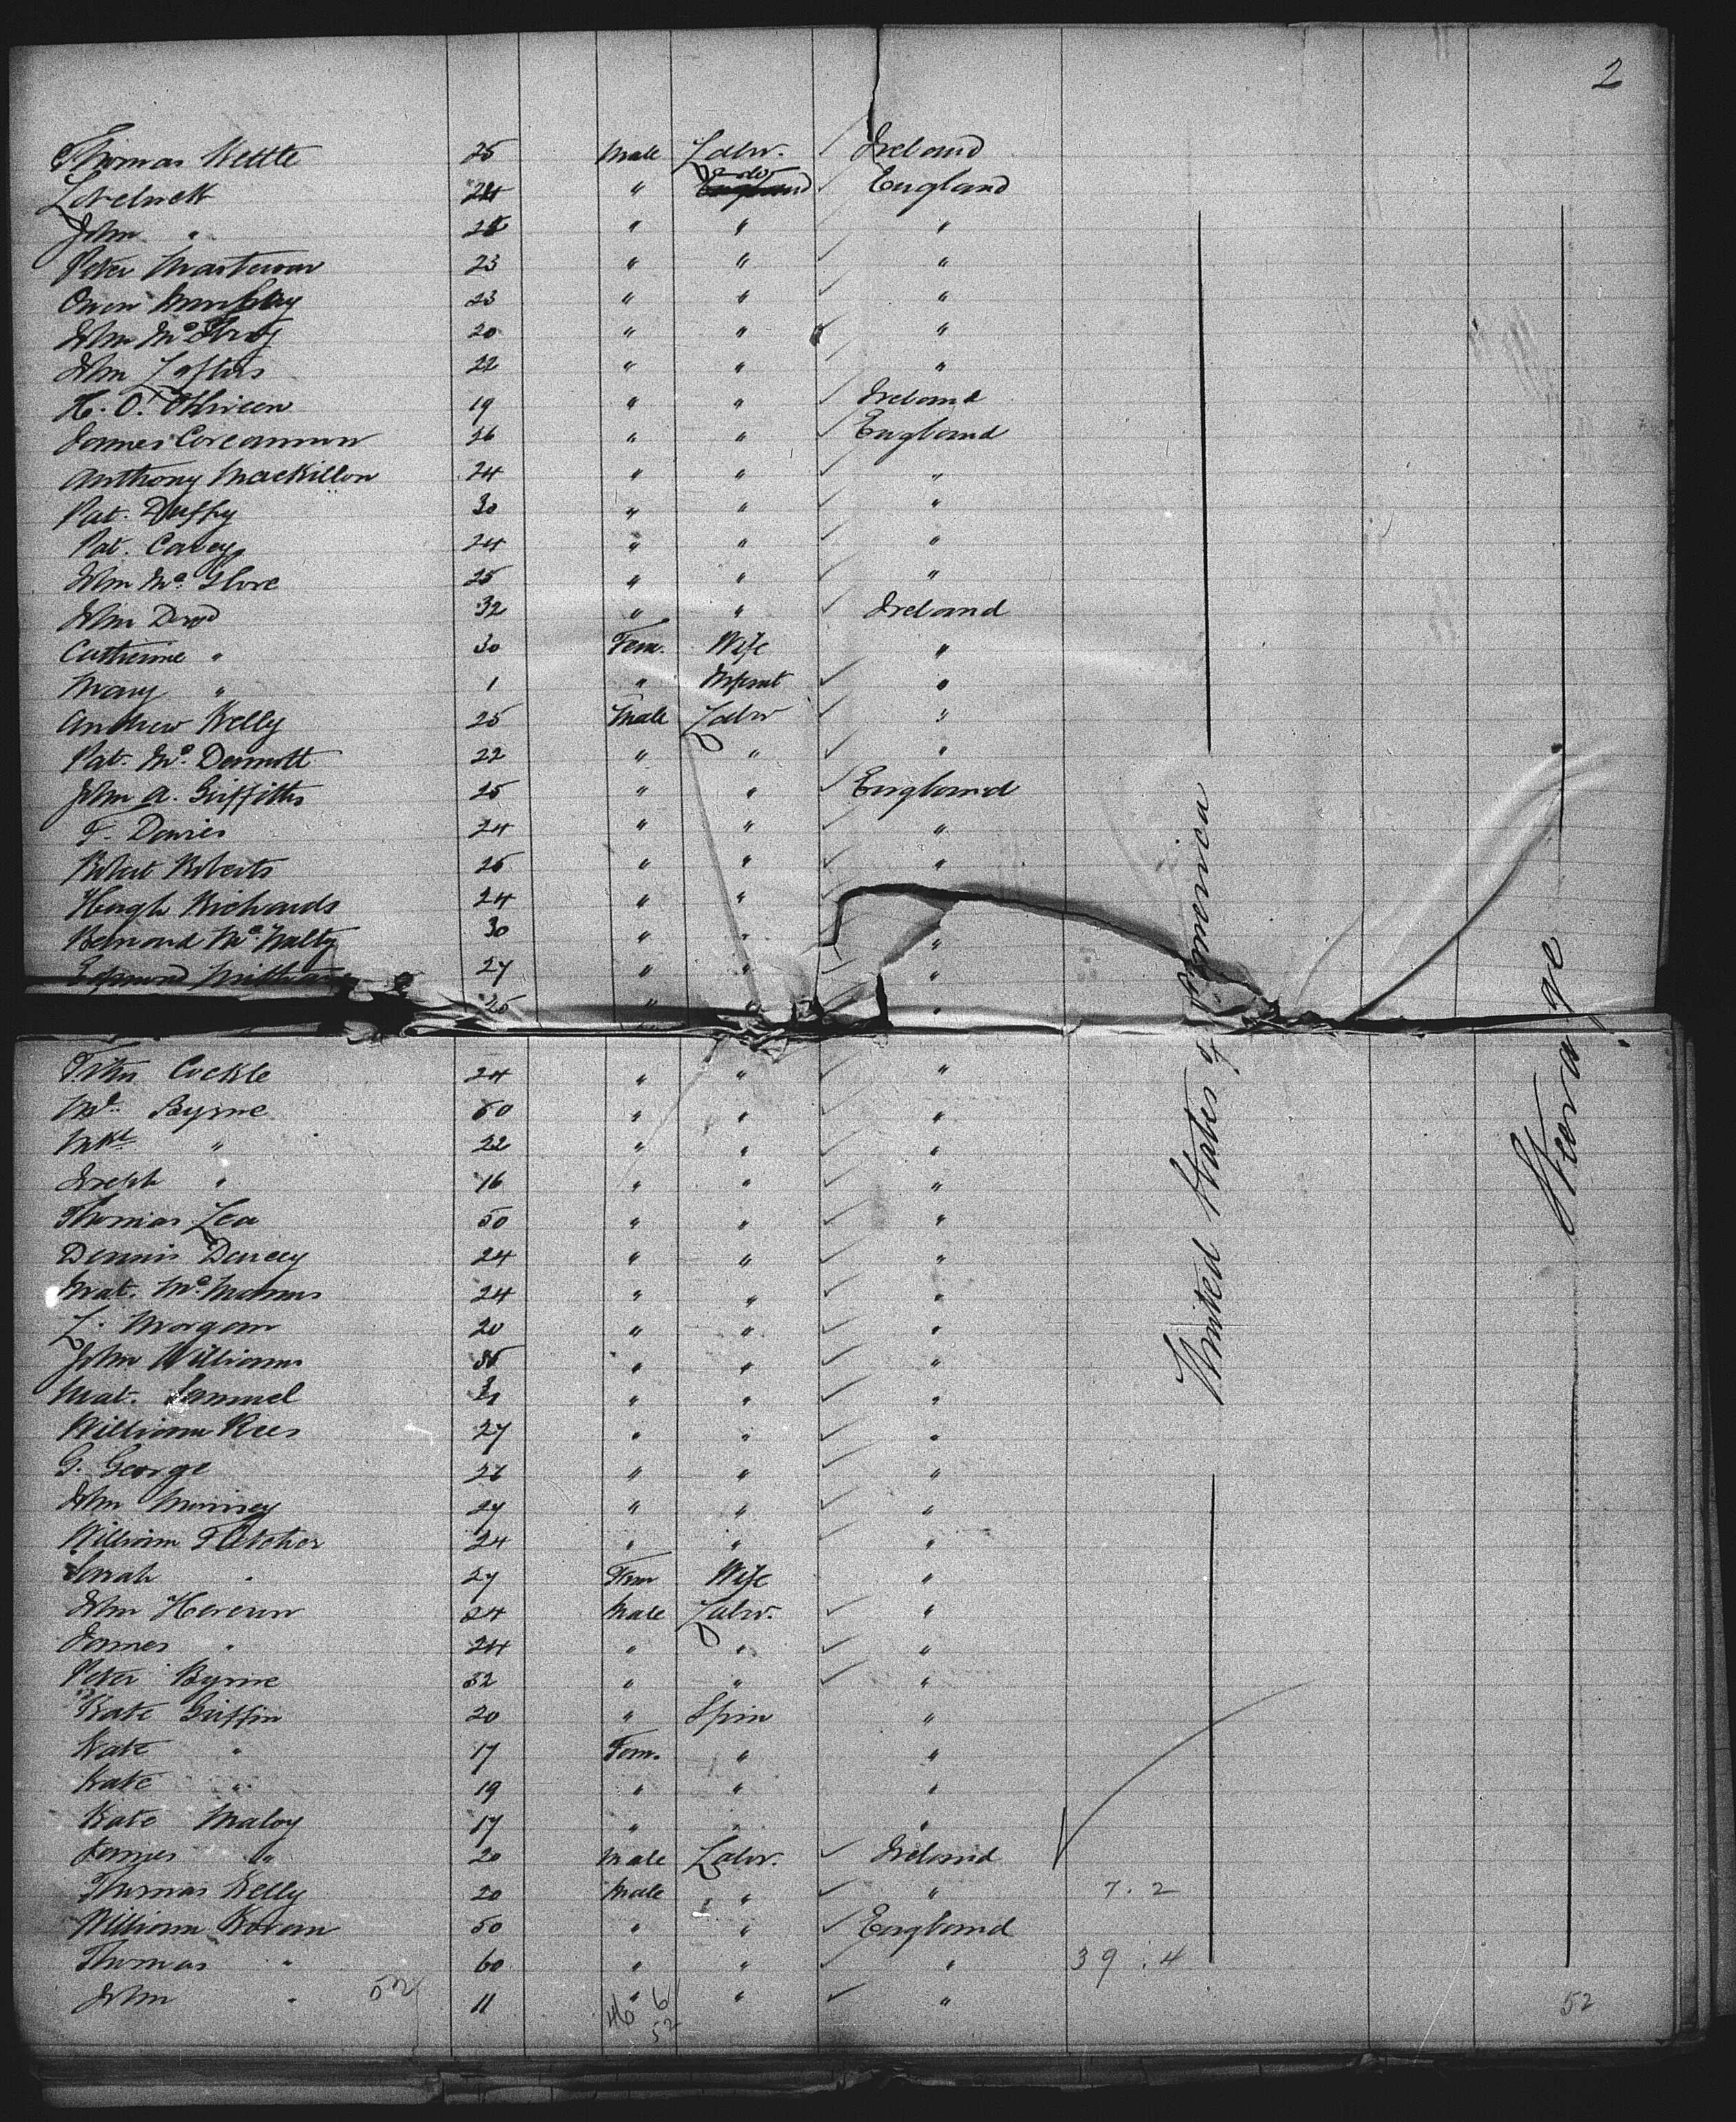 2
Thomas Nettle 25 Male Labr. ✓ Ireland
24 " Labr ✓ England
John " 25 " " "
Peter 23 " " ✓ "
Owen Murphy 23 " " ✓ "
John 20 " " "
John Loftus 22 " " ✓ "
H. O. 19 " " ✓ Ireland
James Corcannon 26 " " ✓ England
Anthony MacKillon 24 " " ✓ "
Pat. Duffy 30 " " ✓ "
Pat. Cavey 24 " " ✓ "
John Mc Glore 25 " " ✓ "
John Dowd 32 " " ✓ Ireland
Catherine " 30 Fem. Wife "
Mary " 1 " Infant ✓ "
Andrew Kelly 25 Male Labr ✓ "
Pat. Mc Dermott 22 " " ✓ "
John A. Griffiths 25 " " ✓ England
F. Davies 24 " " ✓ "
Robert Roberts 25 " " ✓ "
Hugh Richards 24 " " ✓ "
Bernard Mc Nalty 30 " " ✓ "
Edmond 27 " " ✓ "
25 " "
John Cockle 24 " " ✓ "
Byrne 50 " " ✓ "
Mkl " 22 " " ✓ "
Joseph " 16 " " ✓ "
Thomas Lea 50 " " ✓ "
Dennis Darcey 24 " " ✓ "
Mat. Mc Manus 24 " " ✓ "
L. Morgan 20 " " ✓ "
John Williams 35 " " ✓ "
Mat. Samuel " " ✓ "
William Rees 27 " " ✓ "
G. George 26 " " ✓ "
John 27 " " ✓ "
William Fletcher 24 " " ✓ "
Sarah " 27 Fem Wife "
John Heveran 24 Male Labr. ✓ "
James " 24 " " ✓ "
Peter Byrne 32 " " ✓ "
Kate Griffin 20 " Spin "
Kate " 17 Fem. " "
Kate " 19 " " "
Kate Maloy 17 " " "
James " 20 Male Labr. ✓ Ireland
Thomas Kelly 20 Male " ✓ " 7.2
William Koran 50 " " ✓ England
Thomas " 60 " " ✓ " 39.4
John " 52 11 " " ✓ "
46 6
52
52
United States of America
Steerage